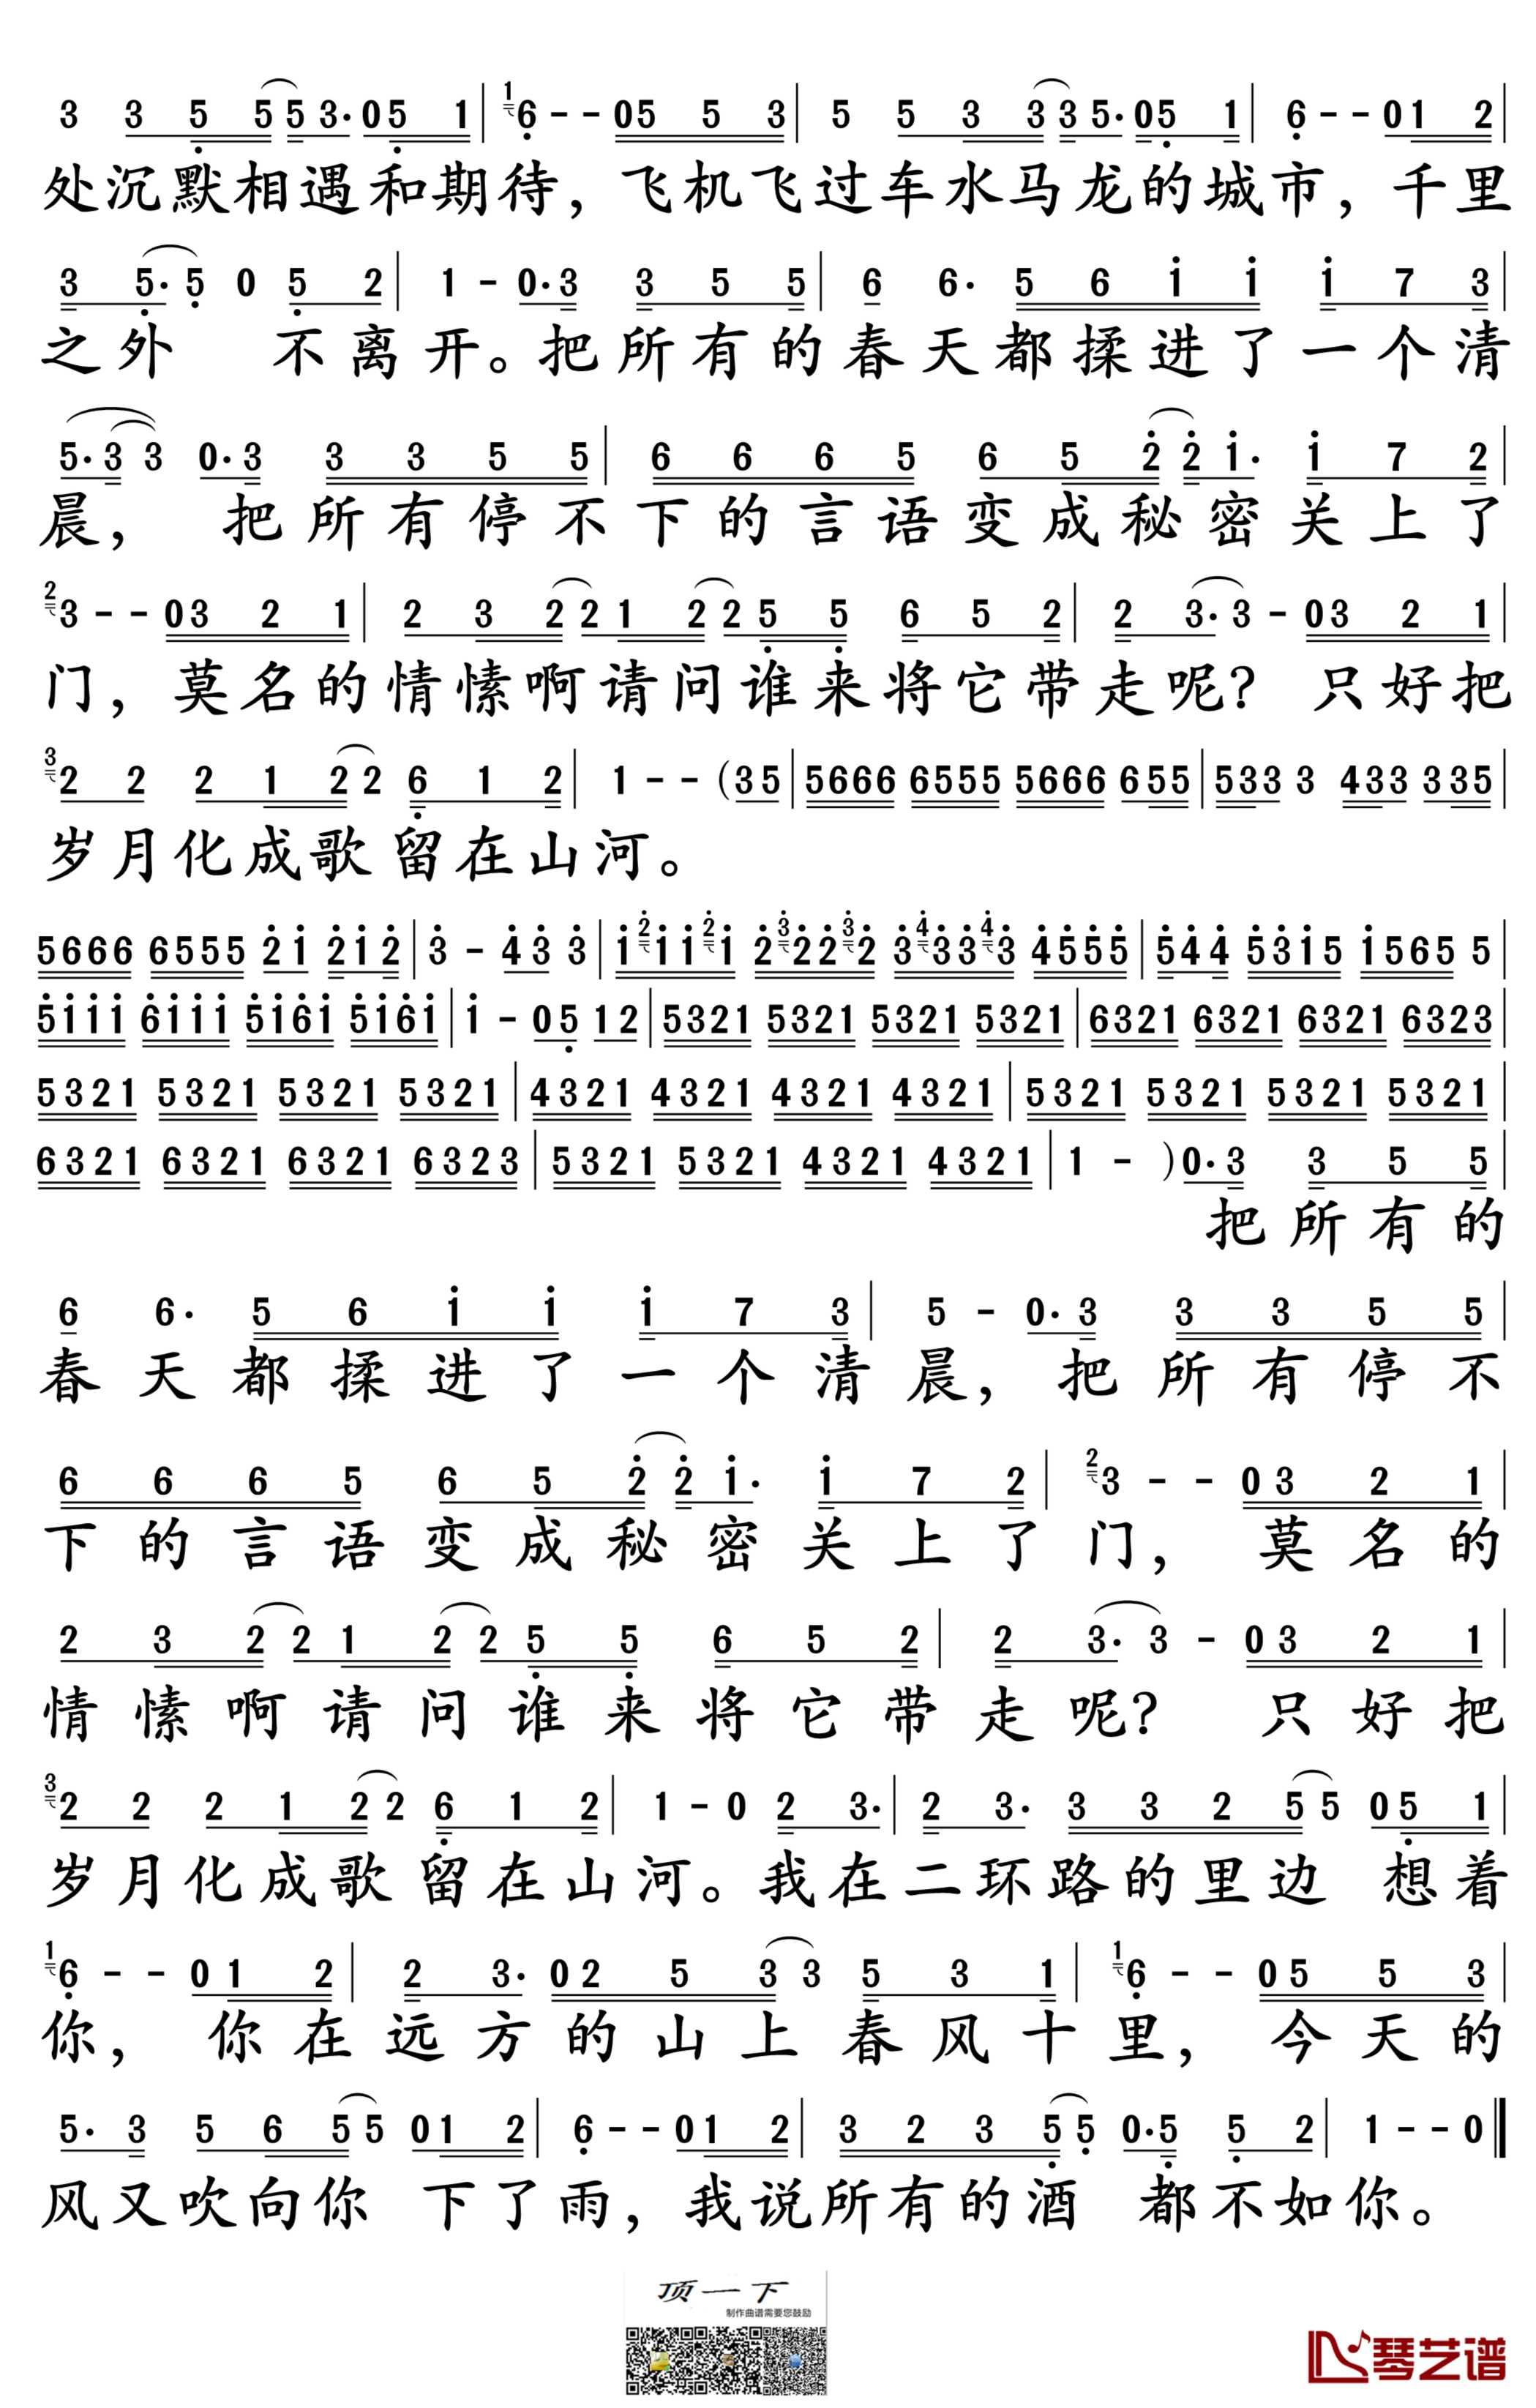 3 3 5 5 5 3· 0 5 1 | 1 6 - - 0 5 5 3 | 5 5 3 3 3 5· 0 5 1 | 6 - - 0 1 2 |
处沉默相遇和期待，飞机飞过车水马龙的城市，千里
3 5· 5 0 5 2 | 1 - 0· 3 3 5 5 | 6 6· 5 6 1 1 1 7 3 |
之外 不离开。把所有的春天都揉进了一个清
5· 3 3 0· 3 3 3 5 5 | 6 6 6 5 6 5 2 2 1· 1 7 2 |
晨，把所有停不下的言语变成秘密关上了
2 3 - - 0 3 2 1 | 2 3 2 2 1 2 2 5 5 6 5 2 | 2 3· 3 - 0 3 2 1 |
门，莫名的情愫啊请问谁来将它带走呢？只好把
3 2 2 2 1 2 2 6 1 2 | 1 - - (3 5 | 5666 6555 5666 655 | 533 3 433 335 |
岁月化成歌留在山河。
5666 6555 21 212 | 3 - 43 3 | 1 2 1 1 2 1 2 3 2 2 3 2 3 4 3 3 4 3 4555 | 544 5315 1565 5 |
5111 6111 5161 5161 | 1 - 05 12 | 5321 5321 5321 5321 | 6321 6321 6321 6323 |
5321 5321 5321 5321 | 4321 4321 4321 4321 | 5321 5321 5321 5321 |
6321 6321 6321 6323 | 5321 5321 4321 4321 | 1 - ) 0· 3 3 5 5 |
把所有的
6 6· 5 6 1 1 1 7 3 | 5 - 0· 3 3 3 5 5 |
春天都揉进了一个清晨，把所有停不
6 6 6 5 6 5 2 2 1· 1 7 2 | 2 3 - - 0 3 2 1 |
下的言语变成秘密关上了门，莫名的
2 3 2 2 1 2 2 5 5 6 5 2 | 2 3· 3 - 0 3 2 1 |
情愫啊请问谁来将它带走呢？只好把
3 2 2 2 1 2 2 6 1 2 | 1 - 0 2 3· | 2 3· 3 3 2 5 5 0 5 1 |
岁月化成歌留在山河。我在二环路的里边 想着
1 6 - - 0 1 2 | 2 3· 0 2 5 3 3 5 3 1 | 1 6 - - 0 5 5 3 |
你，你在远方的山上春风十里，今天的
5· 3 5 6 5 5 0 1 2 | 6 - - 0 1 2 | 3 2 3 5 5 0· 5 5 2 | 1 - - 0 ‖
风又吹向你 下了雨，我说所有的酒 都不如你。
顶一下
制作曲谱需要您鼓励
琴艺谱